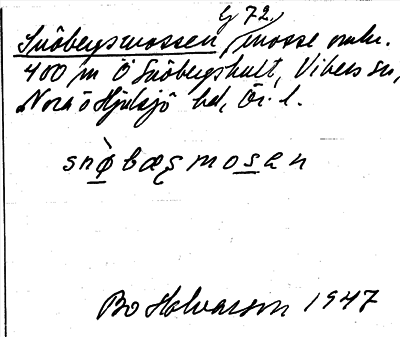 G 72.
Snöbergsmossen, mosse omkr.
400 m Ö Snöbergshult, Vibers sn,
Nora o Hjulsjö bd, Ör. l.
snø̀bæʂmosen
Bo Halvarson 1947